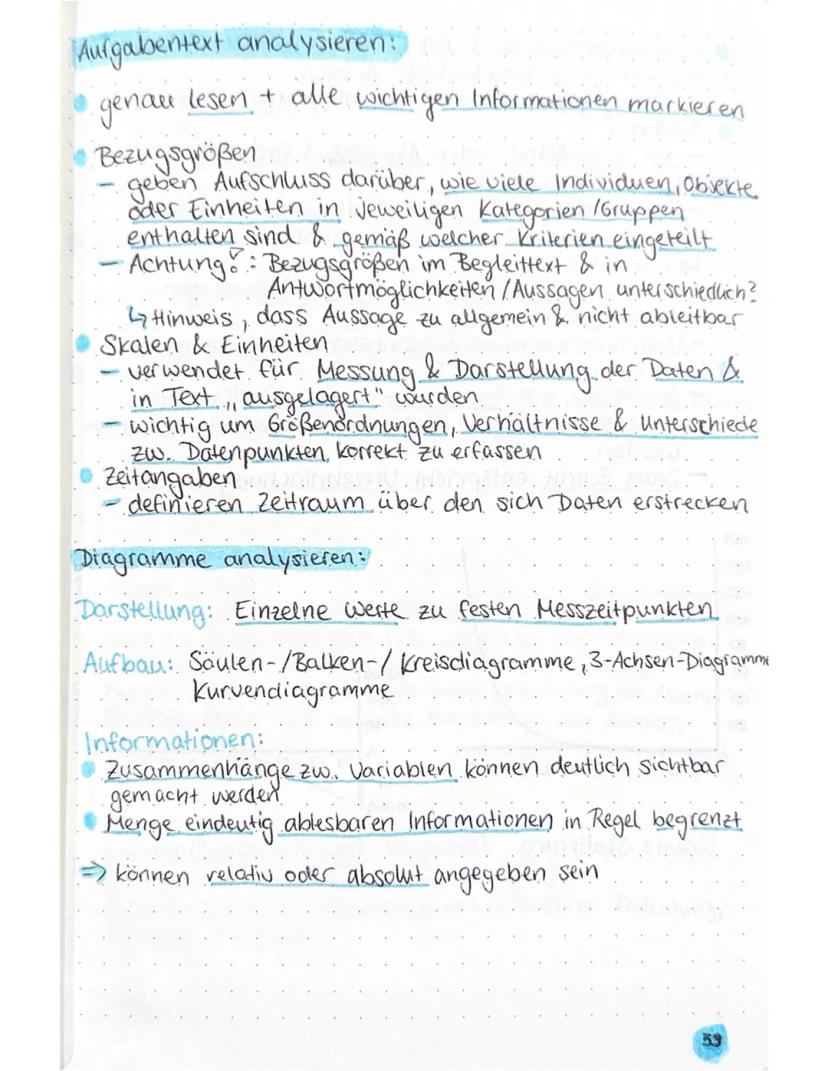 Aufgabentext analysieren:
• genau lesen + alle wichtigen Informationen markieren
• Bezugsgrößen
– geben Aufschluss darüber, wie viele Individuen, Objekte
oder Einheiten in jeweiligen Kategorien/Gruppen
enthalten sind & gemäß welcher Kriterien eingeteilt
– Achtung!: Bezugsgrößen im Begleittext & in
Antwortmöglichkeiten/Aussagen unterschiedlich?
↳ Hinweis, dass Aussage zu allgemein & nicht ableitbar
• Skalen & Einheiten
– verwendet für Messung & Darstellung der Daten &
in Text „ausgelagert" wurden
– wichtig um Größenordnungen, Verhältnisse & Unterschiede
zw. Datenpunkten korrekt zu erfassen
• Zeitangaben
– definieren Zeitraum über den sich Daten erstrecken
Diagramme analysieren:
Darstellung: Einzelne Werte zu festen Messzeitpunkten
Aufbau: Säulen-/Balken-/Kreisdiagramme, 3-Achsen-Diagramme
Kurvendiagramme
Informationen:
• Zusammenhänge zw. Variablen können deutlich sichtbar
gemacht werden
• Menge eindeutig ablesbaren Informationen in Regel begrenzt
⇒ können relativ oder absolut angegeben sein
53